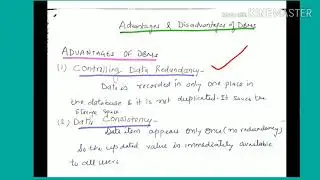 Made with
KINEMASTER
Advantages & Disadvantages of DBMS
ADVANTAGES OF DBMS
(1) Controlling Data Redundancy-
Data is recorded in only one place in
the database & it is not duplicated. It saves the
storage space
(2) Data Consistency-
Data item appears only once (no redundancy)
So the updated value is immediately available
to all users